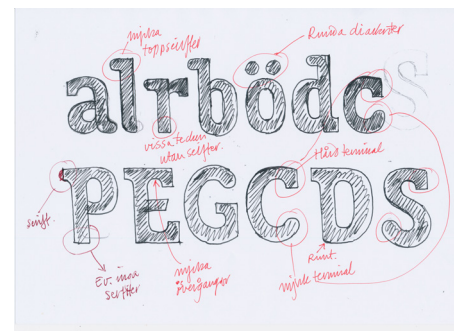 mjuka
toppseriffer
Runda diakriter
alrbödc
S
vissa tecken
utan seriffer.
Hård terminal
PEGCDS
seriff.
Ev. inga
seriffer
mjuka
övergångar
Runt.
mjuk terminal